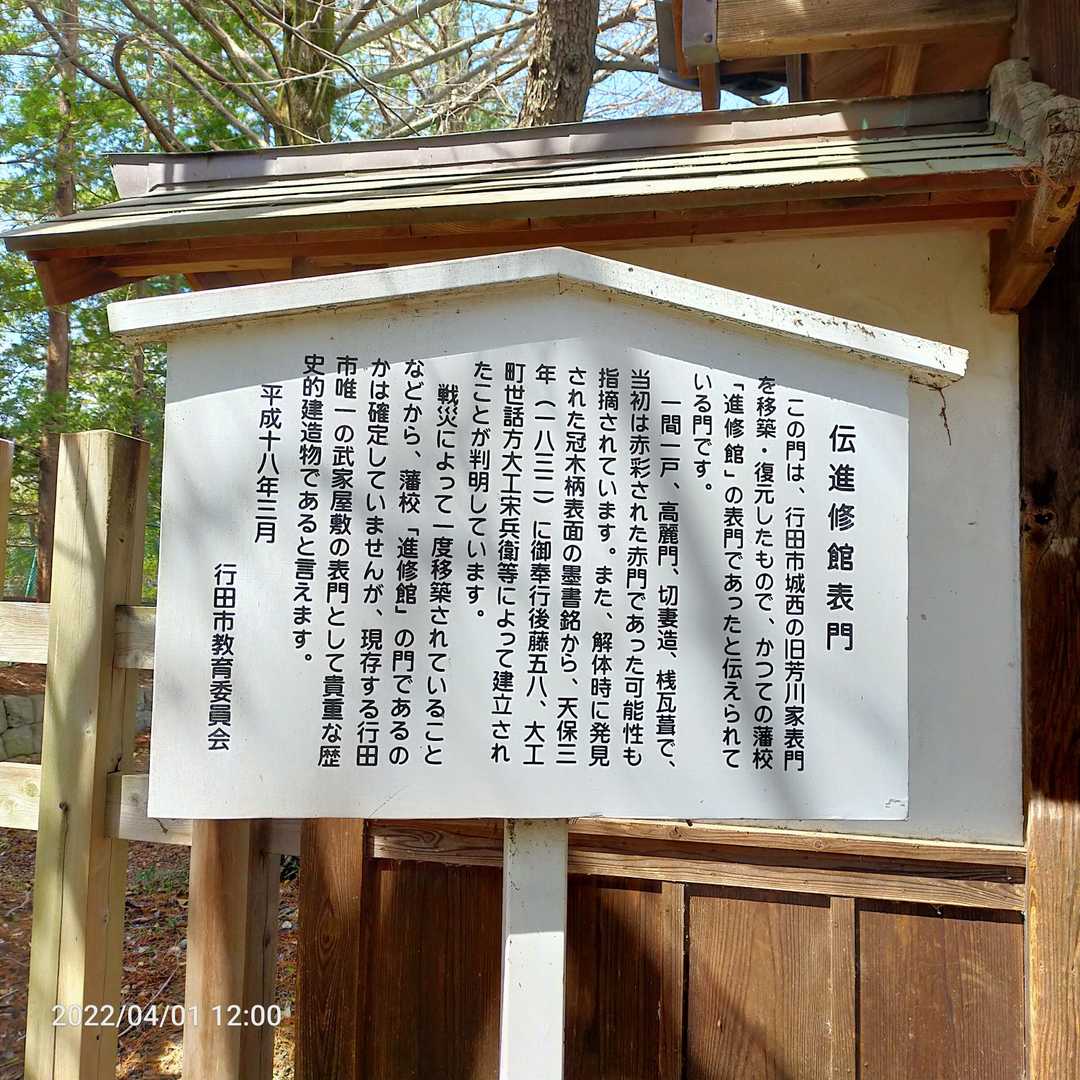 伝進修館表門
この門は、行田市城西の旧芳川家表門
を移築・復元したもので、かつての藩校
「進修館」の表門であったと伝えられて
いる門です。
一間一戸、高麗門、切妻造、桟瓦葺で、
当初は赤彩された赤門であった可能性も
指摘されています。また、解体時に発見
された冠木柄表面の墨書銘から、天保三
年（一八三二）に御奉行後藤五八、大工
町世話方大工宋兵衛等によって建立され
たことが判明しています。
戦災によって一度移築されていること
などから、藩校「進修館」の門であるの
かは確定していませんが、現存する行田
市唯一の武家屋敷の表門として貴重な歴
史的建造物であると言えます。
平成十八年三月
行田市教育委員会
2022/04/01 12:00